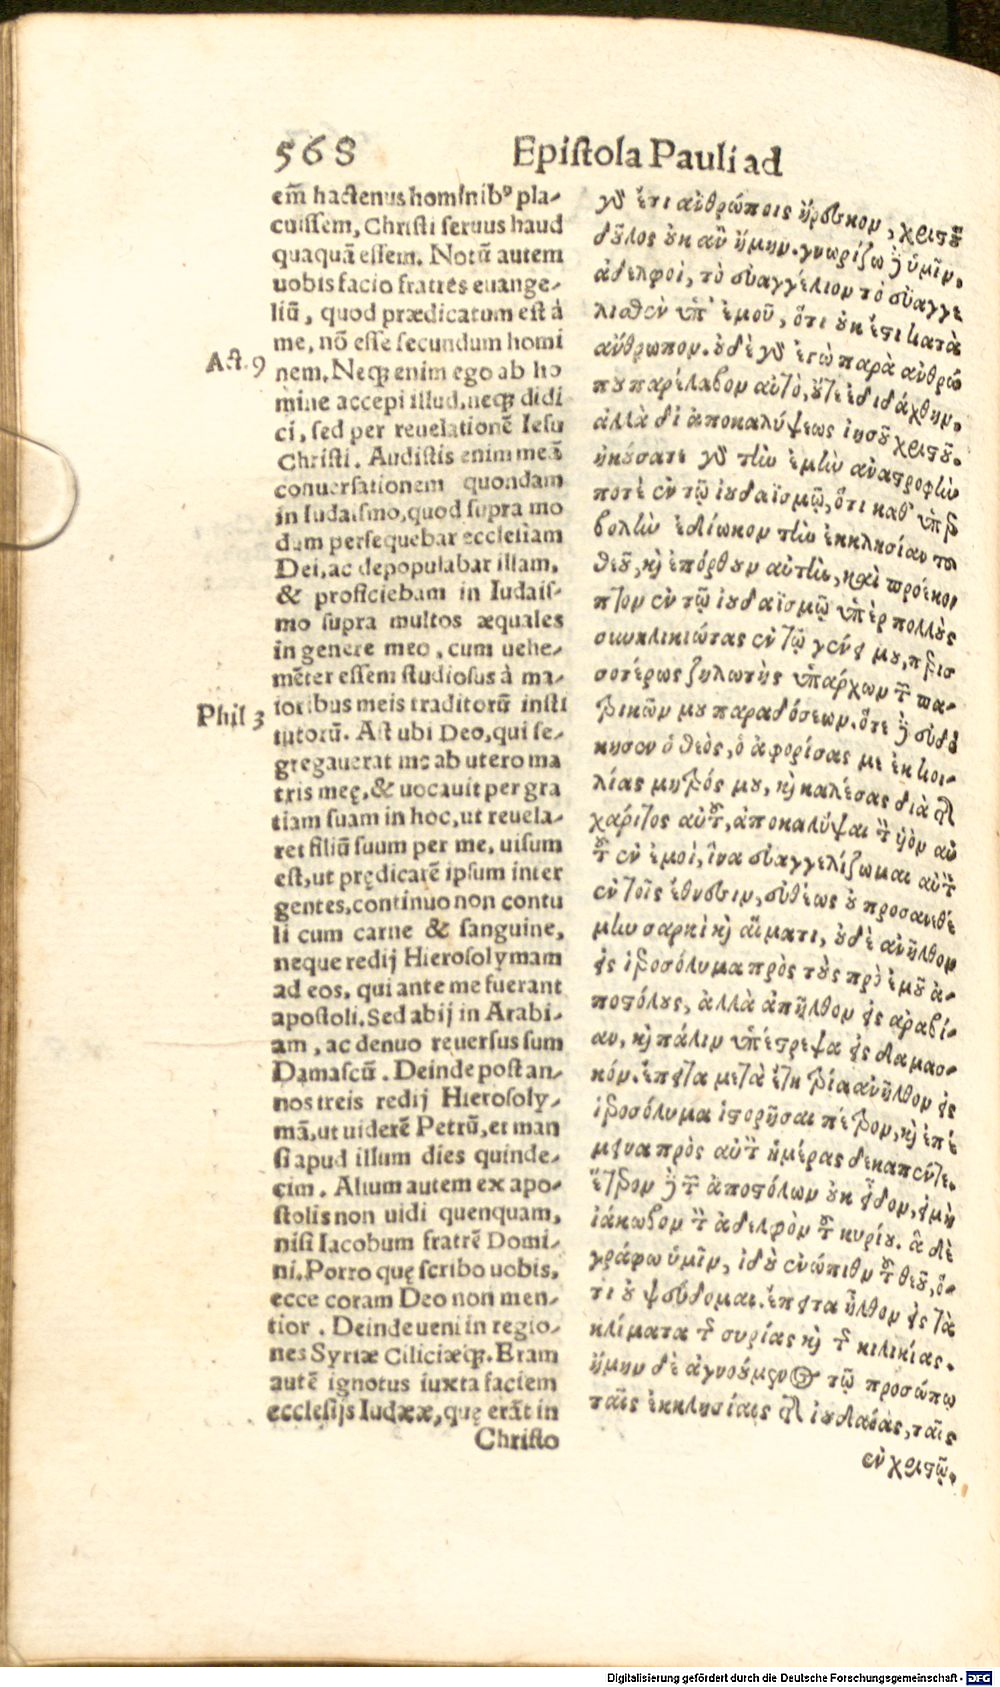 568 Epistola Pauli ad
em̃ hactenus hominibꝰ pla-
cuissem, Christi seruus haud
quaquã essem. Notũ autem
uobis facio fratres euange-
liũ, quod prædicatum est à
me, nõ esse secundum homi
Act. 9
nem. Neq; enim ego ab ho
mine accepi illud, neq; didi
ci, sed per reuelationẽ Iesu
Christi. Audistis enim meã
conuersationem quondam
in Iudaismo, quod supra mo
dum persequebar ecclesiam
Dei, ac depopulabar illam,
& proficiebam in Iudais-
mo supra multos æquales
in genere meo, cum uehe-
mẽter essem studiosus à ma-
Phil 3
ioribus meis traditorũ insti
tutorũ. Ast ubi Deo, qui se-
gregauerat me ab utero ma
tris meę, & uocauit per gra
tiam suam in hoc, ut reuela-
ret filiũ suum per me, uisum
est, ut prędicarẽ ipsum inter
gentes, continuo non contu
li cum carne & sanguine,
neque redij Hierosolymam
ad eos, qui ante me fuerant
apostoli. Sed abij in Arabi-
am, ac denuo reuersus sum
Damascũ. Deinde post an-
nos treis redij Hierosoly-
mã, ut uiderẽ Petrũ, et man
si apud illum dies quinde-
cim. Alium autem ex apo-
stolis non uidi quenquam,
nisi Iacobum fratrẽ Domi-
ni. Porro quę scribo uobis,
ecce coram Deo non men-
tior. Deinde ueni in regio-
nes Syriæ Ciliciæq;. Eram
autẽ ignotus iuxta faciem
ecclesijs Iudææ, quę erãt in
Christo
γὰρ ἔτι ἀνθρώποις ἤρεσκον, χριστοῦ
δοῦλος οὐκ ἂν ἤμην. γνωρίζω δὲ ὑμῖν,
ἀδελφοὶ, τὸ εὐαγγέλιον τὸ εὐαγγε
λισθὲν ὑπ' ἐμοῦ, ὅτι οὐκ ἔστι κατὰ
ἄνθρωπον. οὐδὲ γὰρ ἐγὼ παρὰ ἀνθρώ
που παρέλαβον αὐτὸ, οὔτε ἐδιδάχθην,
ἀλλὰ δι ἀποκαλύψεως ἰησοῦ χριστοῦ.
ἠκούσατε γὰρ τὴν ἐμὴν ἀναστροφὴν
ποτὲ ἐν τῷ ἰουδαϊσμῷ, ὅτι καθ' ὑπερ
βολὴν ἐδίωκον τὴν ἐκκλησίαν τοῦ
θεοῦ, καὶ ἐπόρθουν αὐτὴν, καὶ προέκο
πτον ἐν τῷ ἰουδαϊσμῷ ὑπὲρ πολλοὺς
συνηλικιώτας ἐν τῷ γένει μου, περισ
σοτέρως ζηλωτὴς ὑπάρχων τῶν πα-
τρικῶν μου παραδόσεων. ὅτε δὲ εὐδό
κησεν ὁ θεὸς, ὁ ἀφορίσας με ἐκ κοι-
λίας μητρός μου, καὶ καλέσας διὰ τῆς
χάριτος αὐτοῦ, ἀποκαλύψαι τὸν υἱὸν αὐ
τοῦ ἐν ἐμοί, ἵνα εὐαγγελίζωμαι αὐτὸν
ἐν τοῖς ἔθνεσιν, εὐθέως οὐ προσανεθέ
μην σαρκὶ καὶ αἵματι, οὐδὲ ἀνῆλθον
εἰς ἱεροσόλυμα πρὸς τοὺς πρὸ ἐμοῦ ἀ-
ποστόλους, ἀλλὰ ἀπῆλθον εἰς ἀραβί-
αν, καὶ πάλιν ὑπέστρεψα εἰς δαμασ-
κόν. ἔπειτα μετὰ ἔτη τρία ἀνῆλθον εἰς
ἱεροσόλυμα ἱστορῆσαι πέτρον, καὶ ἐπέ
μεινα πρὸς αὐτὸν ἡμέρας δεκαπέντε.
ἕτερον δὲ τῶν ἀποστόλων οὐκ εἶδον, εἰ μὴ
ἰάκωβον τὸν ἀδελφὸν τοῦ κυρίου. ἃ δὲ
γράφω ὑμῖν, ἰδοὺ ἐνώπιον τοῦ θεοῦ, ὅ-
τι οὐ ψεύδομαι. ἔπειτα ἦλθον εἰς τὰ
κλίματα τῆς συρίας καὶ τῆς κιλικίας.
ἤμην δὲ ἀγνοούμενος τῷ προσώπῳ
ταῖς ἐκκλησίαις τῆς ἰουδαίας, ταῖς
ἐν χριστῷ.
Digitalisierung gefördert durch die Deutsche Forschungsgemeinschaft - DFG